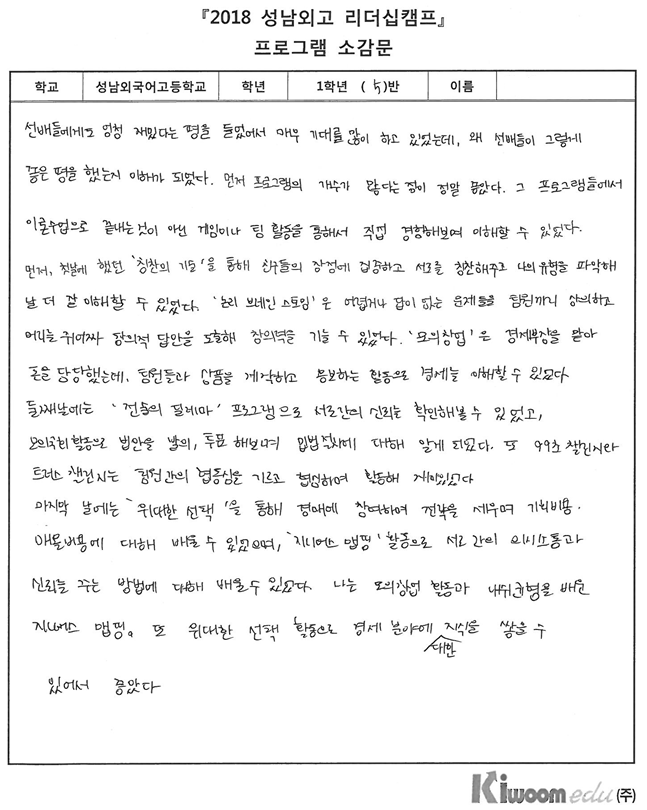 『2018 성남외고 리더십캠프』
프로그램 소감문
학교 성남외국어고등학교 학년 1학년 (5)반 이름
선배들에게도 엄청 재밌다는 평을 들었어서 매우 기대를 많이 하고 있었는데, 왜 선배들이 그렇게
좋은 평을 했는지 이해가 되었다. 먼저 프로그램의 개수가 많다는 점이 정말 좋았다. 그 프로그램들에서
이론수업으로 끝내는것이 아닌 게임이나 팀 활동을 통해서 직접 경험해보며 이해할 수 있었다.
먼저, 첫날에 했던 '칭찬의 기술'을 통해 친구들의 장점에 집중하고 서로를 칭찬해주고 나의 유형을 파악해
날 더 잘 이해할 수 있었다. '논리 브레인 스토밍'은 어렵거나 답이 없는 문제들을 팀원끼리 상의하고
머리를 쥐어짜 창의적 답안을 도출해 창의력을 기를 수 있었다. '모의창업'은 경제부장을 맡아
돈을 담당했는데, 팀원들과 상품을 제작하고 홍보하는 활동으로 경제를 이해할 수 있었다
둘째날에는 '진술의 딜레마' 프로그램으로 서로간의 신뢰를 확인해볼 수 있었고,
모의국회 활동으로 법안을 발의, 투표 해보며 입법절차에 대해 알게 되었다. 또 99초 챌린지와
트러스 챌린지는 팀원간의 협동심을 기르고 협심하며 활동해 재미있었다
마지막 날에는 '위대한 선택'을 통해 경매에 참여하며 전략을 세우며 기회비용,
매몰비용에 대해 배울 수 있었으며, '지니어스 맵핑' 활동으로 서로 간의 의사소통과
신뢰를 주는 방법에 대해 배울수 있었다. 나는 모의창업 활동과 배운
지니어스 맵핑, 또 위대한 선택 활동으로 경제 분야에 대한 지식을 쌓을 수
있어서 좋았다
Kiwoom edu (주)